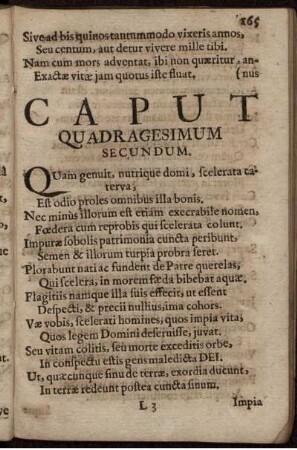 165
Sive ad bis quinos tantummodo vixeris annos,
Seu centum, aut detur vivere mille tibi.
Nam cum mors adventat, ibi non quæritur, an-
Exactæ vitæ jam quotus iste fluat, (nus
CAPUT
QUADRAGESIMUM
SECUNDUM.
QUam genuit, nutrique domi, scelerata ca-
terva;
Est odio proles omnibus illa bonis.
Nec minùs illorum est etiam execrabile nomen,
Fœdera cum reprobis qui scelerata colunt.
Impuræ sobolis patrimonia cuncta peribunt,
Semen & illorum turpia probra feret.
Plorabunt nati ac fundent de Patre querelas,
Qui scelera, in morem fœda bibebat aquæ,
Flagitiis namque illa suis effecit, ut essent
Despecti, & precii nullius, ima cohors.
Væ vobis, scelerati homines, quos impia vita;
Quos legem Domini deseruisse, juvat.
Seu vitam colitis, seu morte exceditis orbe,
In conspectu estis gens maledicta DEI.
Ut, quæcunque sinu de terræ, exordia ducunt,
In terræ redeunt postea cuncta sinum.
L 3 Impia